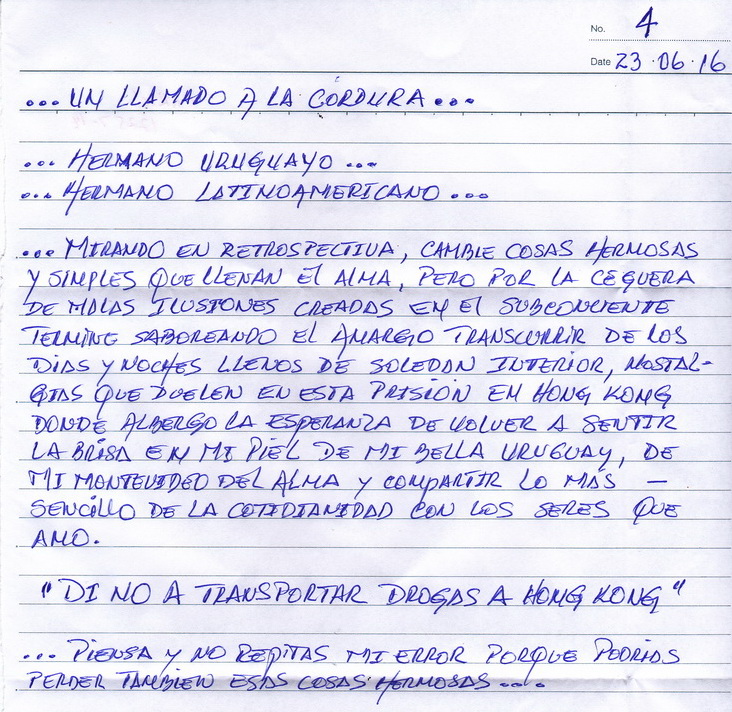 No. 4
Date 23.06.16
... UN LLAMADO A LA CORDURA ...
... HERMANO URUGUAYO ...
... HERMANO LATINOAMERICANO ...
... MIRANDO EN RETROSPECTIVA, CAMBIE COSAS HERMOSAS
Y SIMPLES QUE LLENAN EL ALMA, PERO POR LA CEGUERA
DE MALAS ILUSIONES CREADAS EN EL SUBCONCIENTE
TERMINE SABOREANDO EL AMARGO TRANSCURRIR DE LOS
DIAS Y NOCHES LLENOS DE SOLEDAD INTERIOR, NOSTAL-
GIAS QUE DUELEN EN ESTA PRISIÓN EN HONG KONG
DONDE ALBERGO LA ESPERANZA DE VOLVER A SENTIR
LA BRISA EN MI PIEL DE MI BELLA URUGUAY, DE
MI MONTEVIDEO DEL ALMA Y COMPARTIR LO MÁS —
SENCILLO DE LA COTIDIANIDAD CON LOS SERES QUE
AMO.
"DI NO A TRANSPORTAR DROGAS A HONG KONG"
... PIENSA Y NO REPITAS MI ERROR PORQUE PODRIAS
PERDER TAMBIEN ESAS COSAS HERMOSAS ....